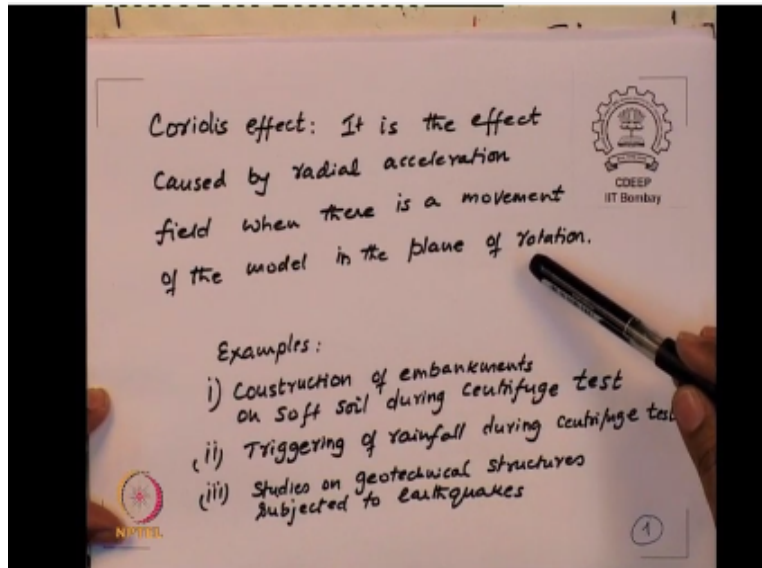 Coriolis effect: It is the effect
Caused by radial acceleration
field when there is a movement
of the model in the plane of rotation.
CDEEP
IIT Bombay
Examples:
i) Construction of embankments
on soft soil during centrifuge test
(ii) Triggering of rainfall during centrifuge test
(iii) Studies on geotechnical structures
subjected to earthquakes
NPTEL
1